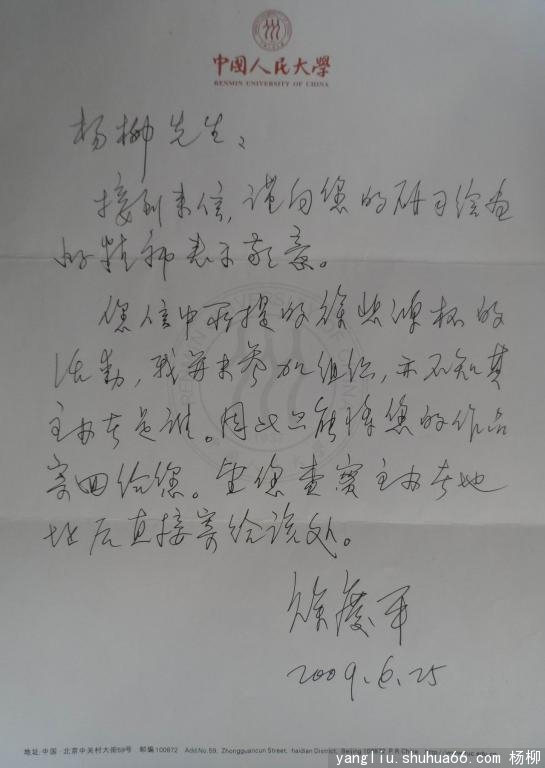 中國人民大學
RENMIN UNIVERSITY OF CHINA
杨柳先生、
接到来信，谨向您的研习绘画
的精神表示敬意。
您信中所提的徐悲鸿杯的
活动，我并未参加组织，亦不知其
主办者是谁。因此只能将您的作品
寄回给您。望您查实主办者地
址后直接寄给该处。
徐庆平
2009.6.25
地址:中国·北京中关村大街59号 邮编100872 Add:No.59, Zhongguancun Street, haidian District, Beijing 100872 P.R.China
yangliu.shuhua66.com 杨柳